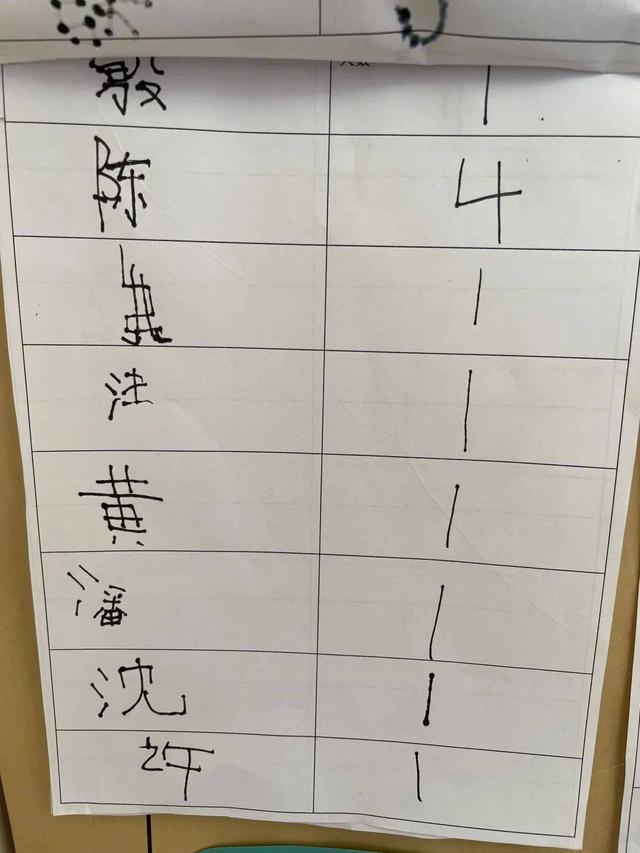 1
陈 4
1
1
黄 1
潘 1
沈 1
许 1